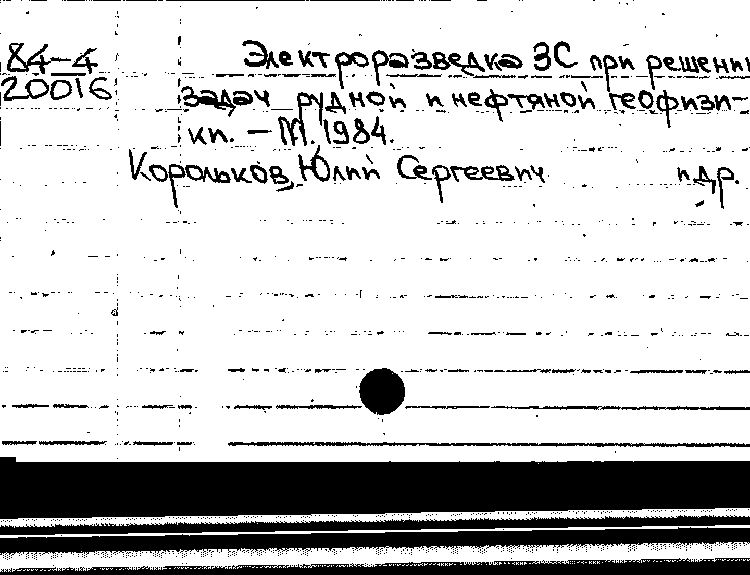 84-4
20016
Электроразведка ЗС при решении
задач рудной и нефтяной геофизи-
ки. - М., 1984.
Корольков, Юлий Сергеевич и др.